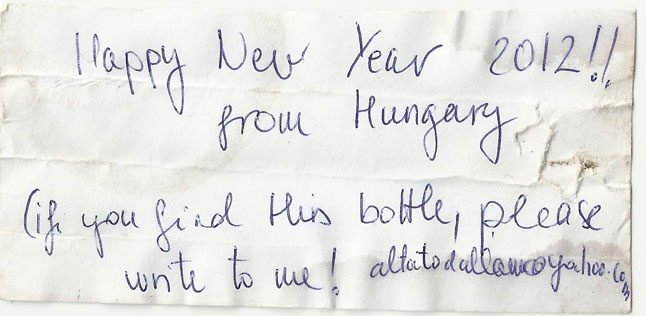 Happy New Year 2012!!
from Hungary
(if you find this bottle, please
write to me!